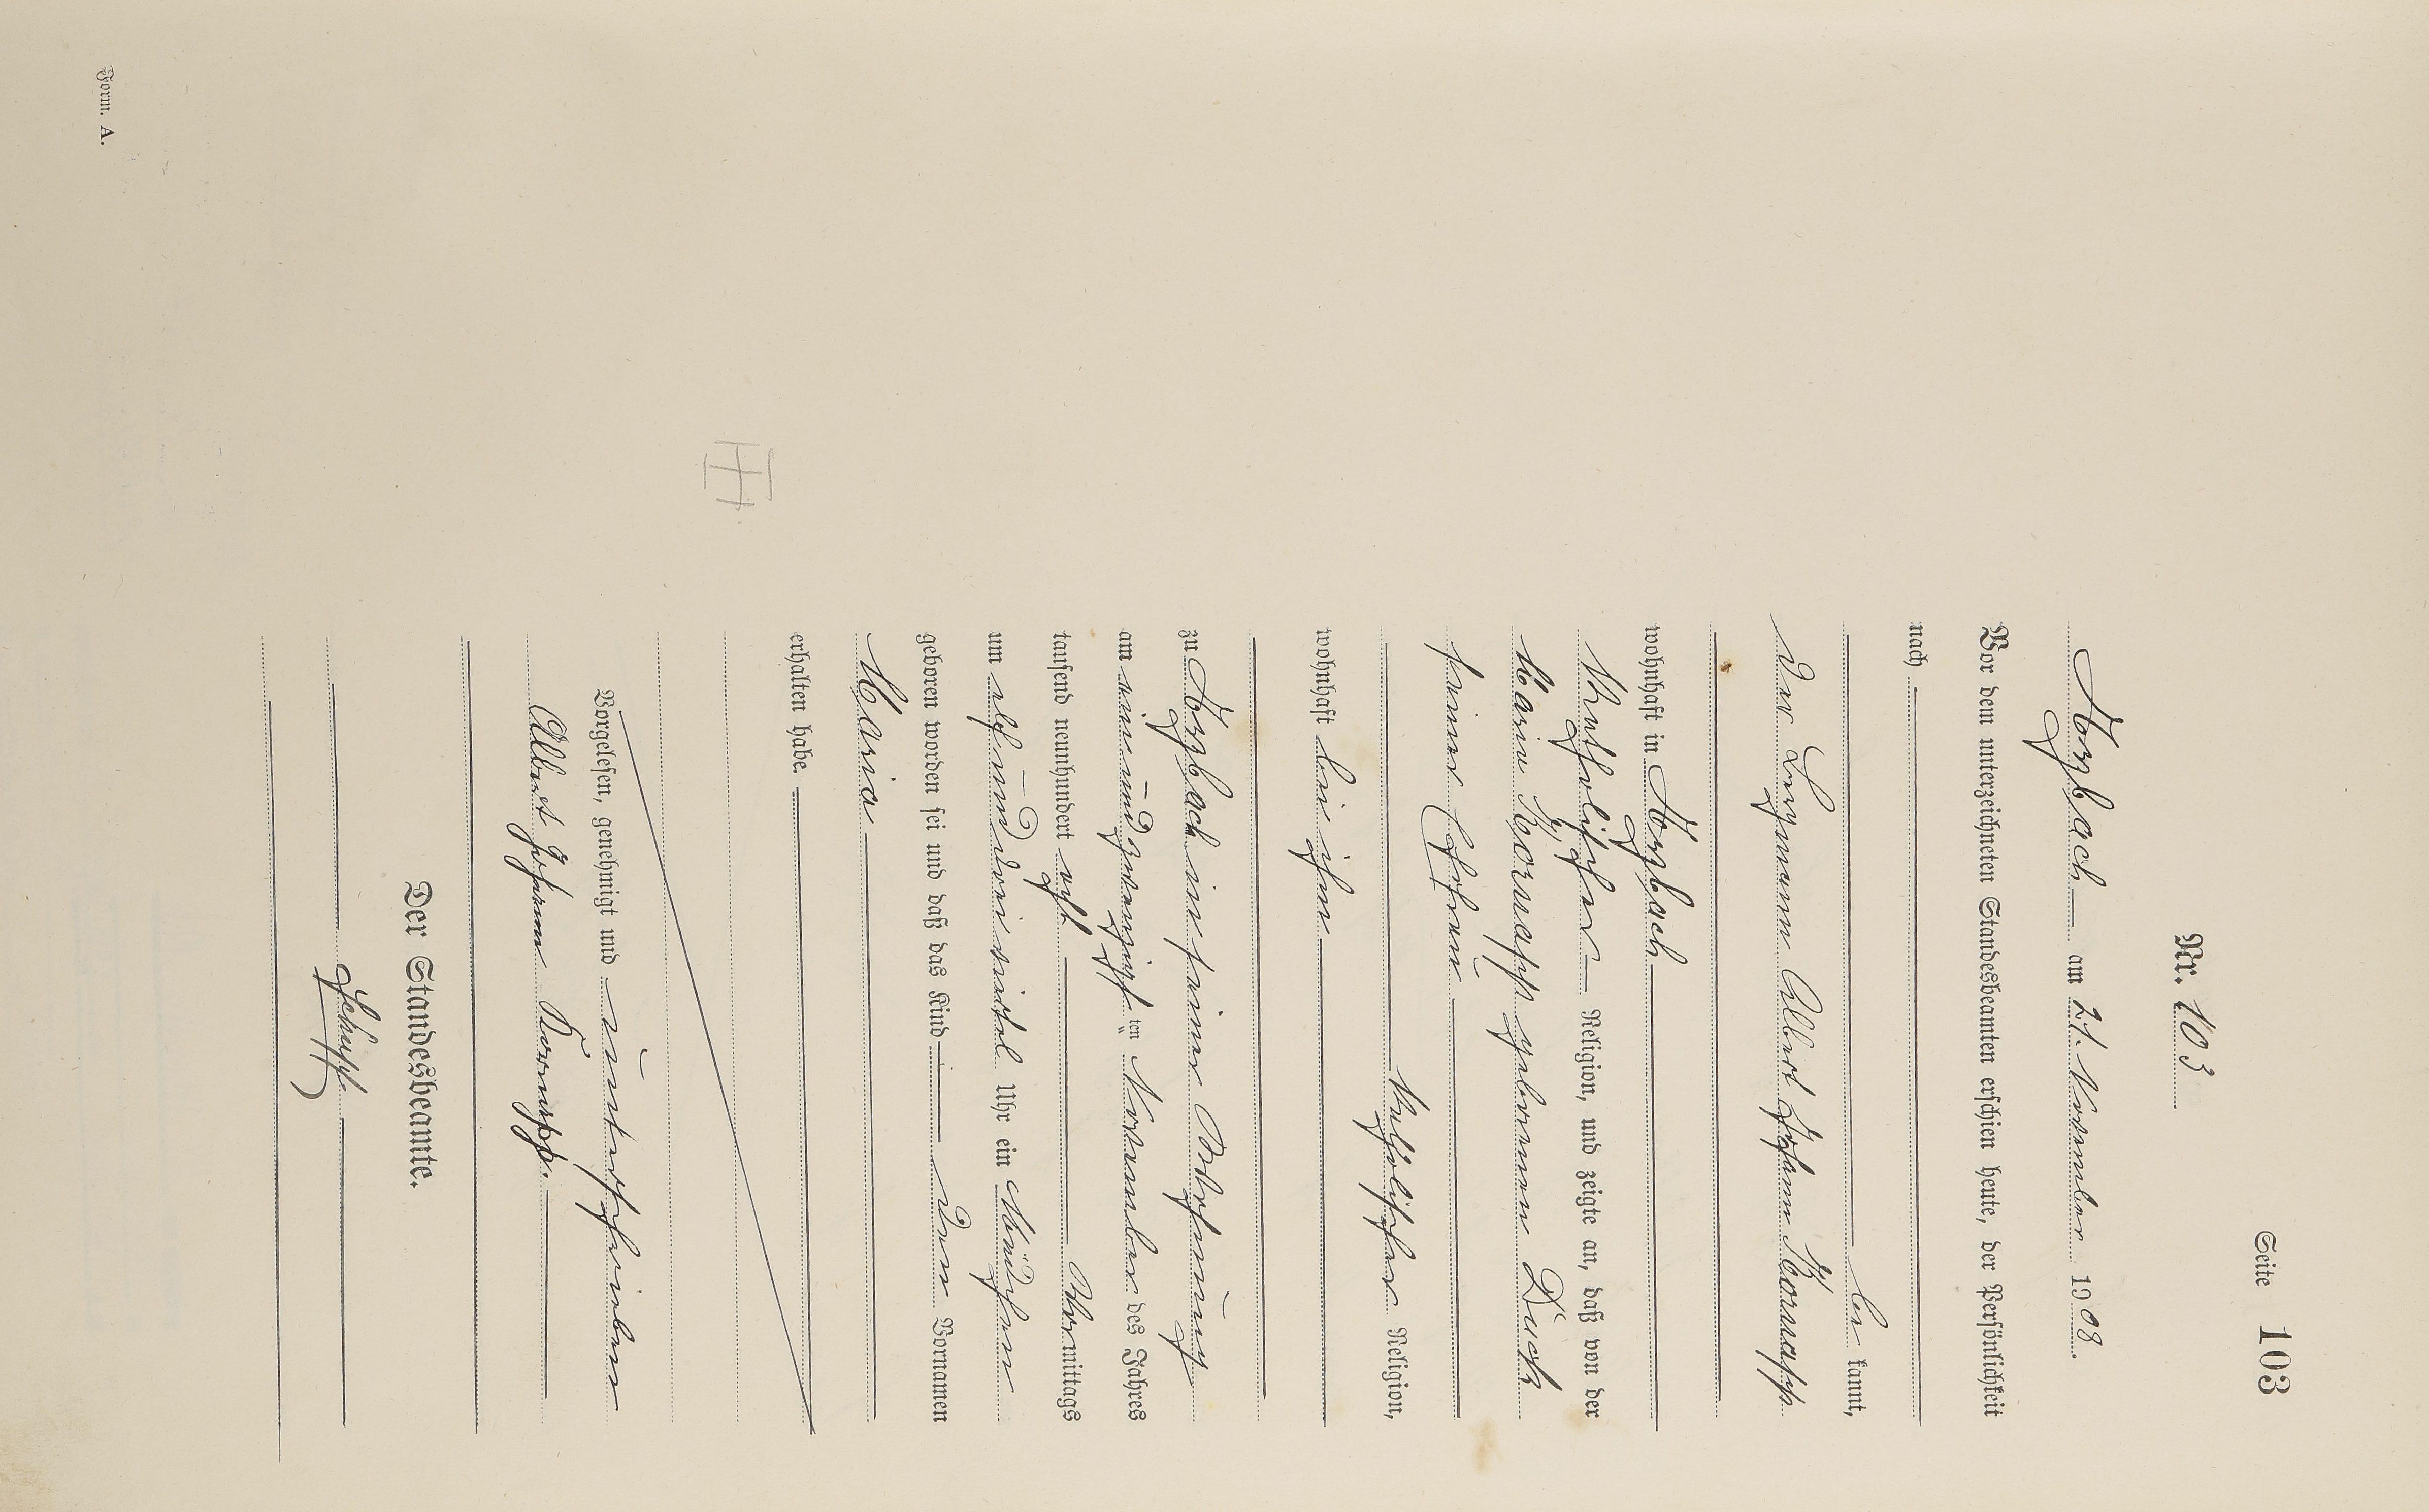 Seite 103
Nr. 103
Arzbach am 21. November 1908.
Vor dem unterzeichneten Standesbeamten erschien heute, der Persönlichkeit
nach
be kannt,
der Bergmann Albert Johann Kornapp
wohnhaft in Arzbach
katholischer Religion, und zeigte an, daß von der
Maria Kornapp geborenen Duck
seiner Ehefrau
katholischer Religion,
wohnhaft bei ihm
zu Arzbach in seiner Wohnung
am ein und zwanzigsten November des Jahres
tausend neunhundert acht Vormittags
um elf und drei viertel Uhr ein Mädchen
geboren worden sei und daß das Kind den Vornamen
Maria
erhalten habe.
Vorgelesen, genehmigt und unterschrieben
Albert Johann Kornapp.
Der Standesbeamte.
Schupp
Form. A.